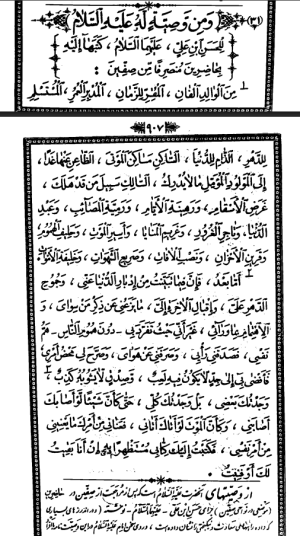 (٣١) وَمِنْ وَصِيَّةٍ لَهُ عَلَيْهِ السَّلَامُ
لِلْحَسَنِ بْنِ عَلِيٍّ، عَلَيْهِمَا السَّلَامُ، كَتَبَهَا إِلَيْهِ
بِحَاضِرِينَ مُنْصَرِفًا مِنْ صِفِّينَ :
مِنَ الْوَالِدِ الْفَانِ، الْمُقِرِّ لِلزَّمَانِ، الْمُدْبِرِ الْعُمُرِ، الْمُسْتَسْلِمِ
٩٠٧
لِلدَّهْرِ، الذَّامِّ لِلدُّنْيَا، السَّاكِنِ مَسَاكِنَ الْمَوْتَى، الظَّاعِنِ عَنْهَا غَدًا،
إِلَى الْمَوْلُودِ الْمُؤَمِّلِ مَا لَا يُدْرَكُ، السَّالِكِ سَبِيلَ مَنْ قَدْ هَلَكَ،
غَرَضِ الْأَسْقَامِ، وَرَهِينَةِ الْأَيَّامِ، وَرَمِيَّةِ الْمَصَائِبِ، وَعَبْدِ
الدُّنْيَا، وَتَاجِرِ الْغُرُورِ، وَغَرِيمِ الْمَنَايَا، وَأَسِيرِ الْمَوْتِ، وَحَلِيفِ الْهُمُومِ،
وَقَرِينِ الْأَحْزَانِ، وَنُصُبِ الْآفَاتِ، وَصَرِيعِ الشَّهَوَاتِ، وَخَلِيفَةِ الْأَمْوَاتِ.
أَمَّا بَعْدُ، فَإِنَّ فِيمَا تَبَيَّنْتُ مِنْ إِدْبَارِ الدُّنْيَا عَنِّي، وَجُمُوحِ
الدَّهْرِ عَلَيَّ، وَإِقْبَالِ الْآخِرَةِ إِلَيَّ، مَا يَزَعُنِي عَنْ ذِكْرِ مَنْ سِوَايَ، وَ
الِاهْتِمَامِ بِمَا وَرَائِي، غَيْرَ أَنِّي حَيْثُ تَفَرَّدَ بِي - دُونَ هُمُومِ النَّاسِ - هَمُّ
نَفْسِي، فَصَدَفَنِي رَأْيِي، وَصَرَفَنِي عَنْ هَوَايَ، وَصَرَّحَ لِي مَحْضُ أَمْرِي،
فَأَفْضَى بِي إِلَى جِدٍّ لَا يَكُونُ فِيهِ لَعِبٌ، وَصِدْقٍ لَا يَشُوبُهُ كَذِبٌ.
وَجَدْتُكَ بَعْضِي، بَلْ وَجَدْتُكَ كُلِّي، حَتَّى كَأَنَّ شَيْئًا لَوْ أَصَابَكَ
أَصَابَنِي، وَكَأَنَّ الْمَوْتَ لَوْ أَتَاكَ أَتَانِي، فَعَنَانِي مِنْ أَمْرِكَ مَا يَعْنِينِي
مِنْ أَمْرِ نَفْسِي، فَكَتَبْتُ إِلَيْكَ كِتَابِي مُسْتَظْهِرًا بِهِ إِنْ أَنَا بَقِيتُ
لَكَ أَوْ فَنِيتُ.